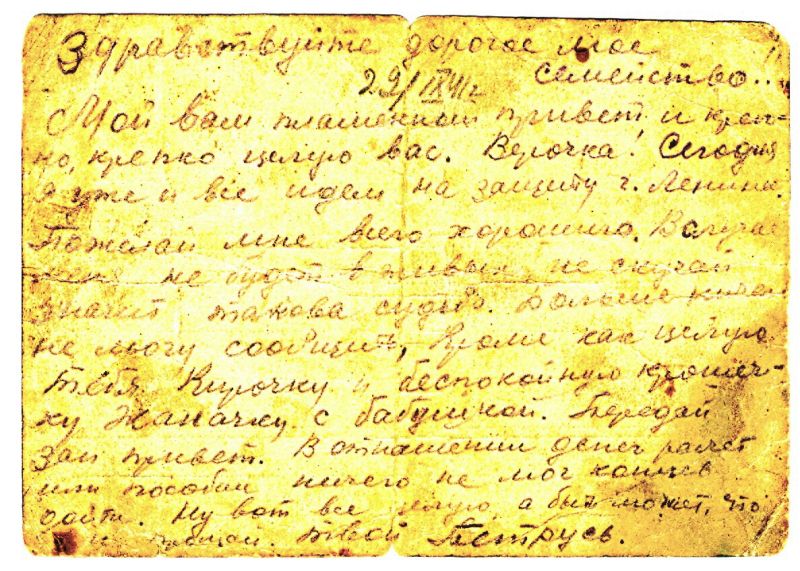 Здравствуйте дорогое мое
семейство!..
22/IX41г
Мой вам пламенный привет и креп-
ко, крепко целую вас. Верочка! Сегодня
я уже и все идем на защиту г. Ленина.
Пожелай мне всего хорошего. В случае
меня не будет в живых, не скучай
значит такова судьба. Больше ничего
не могу сообщить, кроме как целую
тебя Кирочку и беспокойную крошеч-
ку Жаначку с бабушкой. Передай
Зам привет. В отношении денег
или пособии ничего не мог
Ну вот все целую, а быть может, что
и Твой Петрусь.